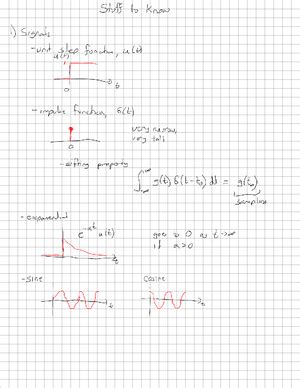 Stuff to Know
1) Signals
- unit step function, u(t)
u(t)
0
t
- impulse function, δ(t)
very narrow,
very tall
0
- sifting property
∫ g(t) δ(t-t₀) dt = g(t₀)
sampling
- exponential
e^-at u(t)
goes to 0 as t→∞
if a>0
t
-sine
cosine
t
t